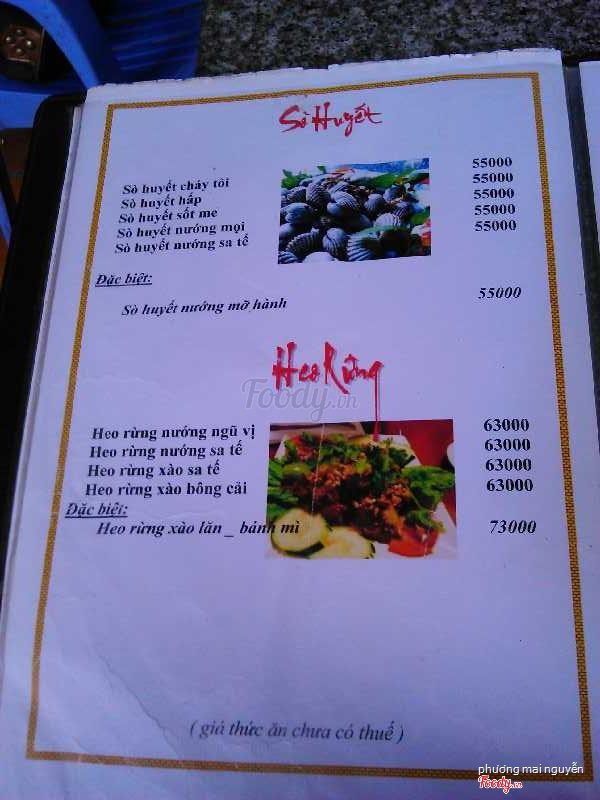 Sò Huyết
Sò huyết cháy tỏi 55000
Sò huyết hấp 55000
Sò huyết sốt me 55000
Sò huyết nướng mọi 55000
Sò huyết nướng sa tế 55000
Đặc biệt:
Sò huyết nướng mỡ hành 55000
Heo Rừng
Foody.vn
Heo rừng nướng ngũ vị 63000
Heo rừng nướng sa tế 63000
Heo rừng xào sa tế 63000
Heo rừng xào bông cải 63000
Đặc biệt:
Heo rừng xào lăn _ bánh mì 73000
( giá thức ăn chưa có thuế )
phương mai nguyễn
Foody.vn